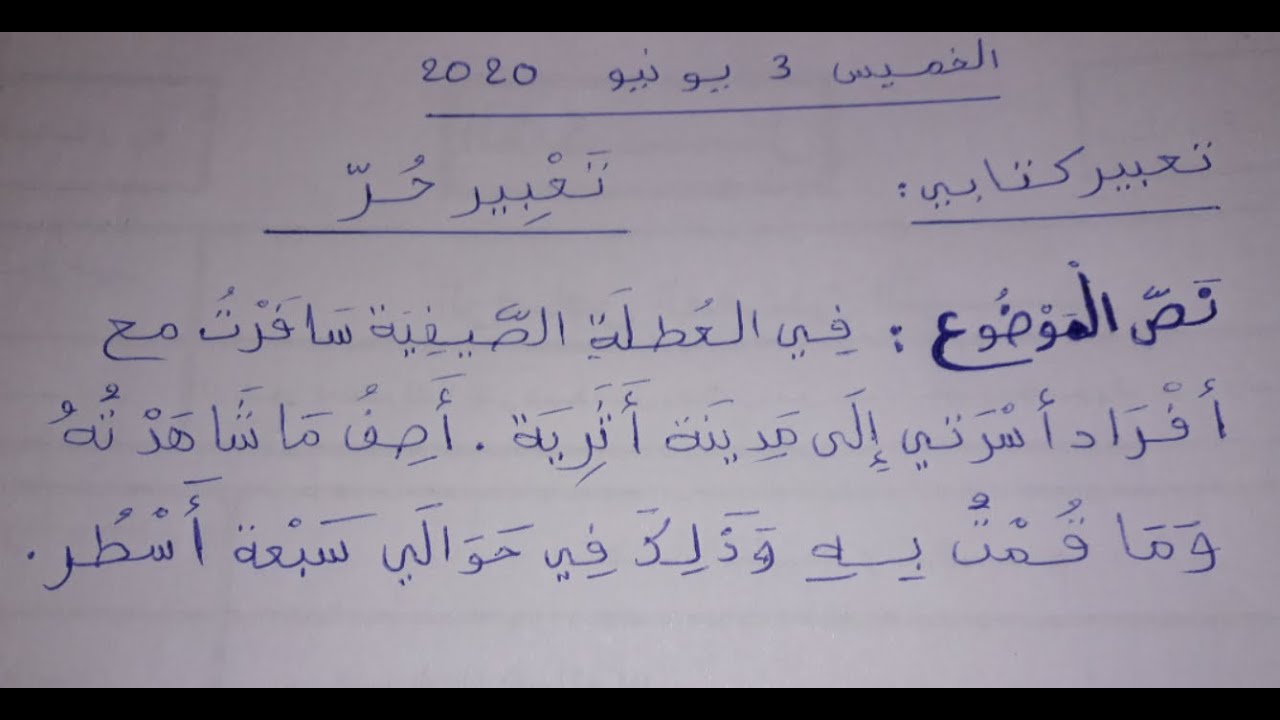 الخميس 3 يونيو 2020
تعبير كتابي: تَعْبِير حُرّ
نَصّ الْمَوْضُوع : فِي العُطلَةِ الصَّيفِيَة سَافَرْتُ مع
أفْرَاد أسْرَتي إِلَى مَدِينَة أَثَرِيَة . أَصِفُ مَا شَاهَدْتُهُ
وَمَا قُمْتُ بِهِ وَذَلِكَ فِي حَوَالَي سَبْعة أَسْطُر .